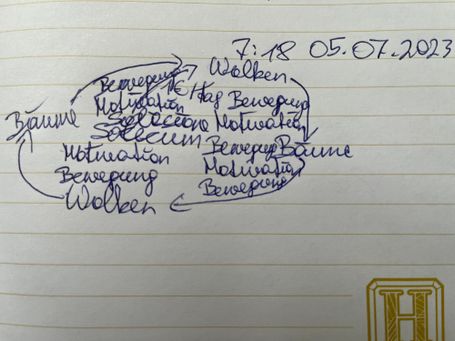 7:18 05.07.2023
Wolken
Bewegung
1€/Tag Bewegung
Motivation
Bäume
Motivation
Motivation
Bewegung Bäume
Bewegung
Motivation
Bewegung
Wolken
H